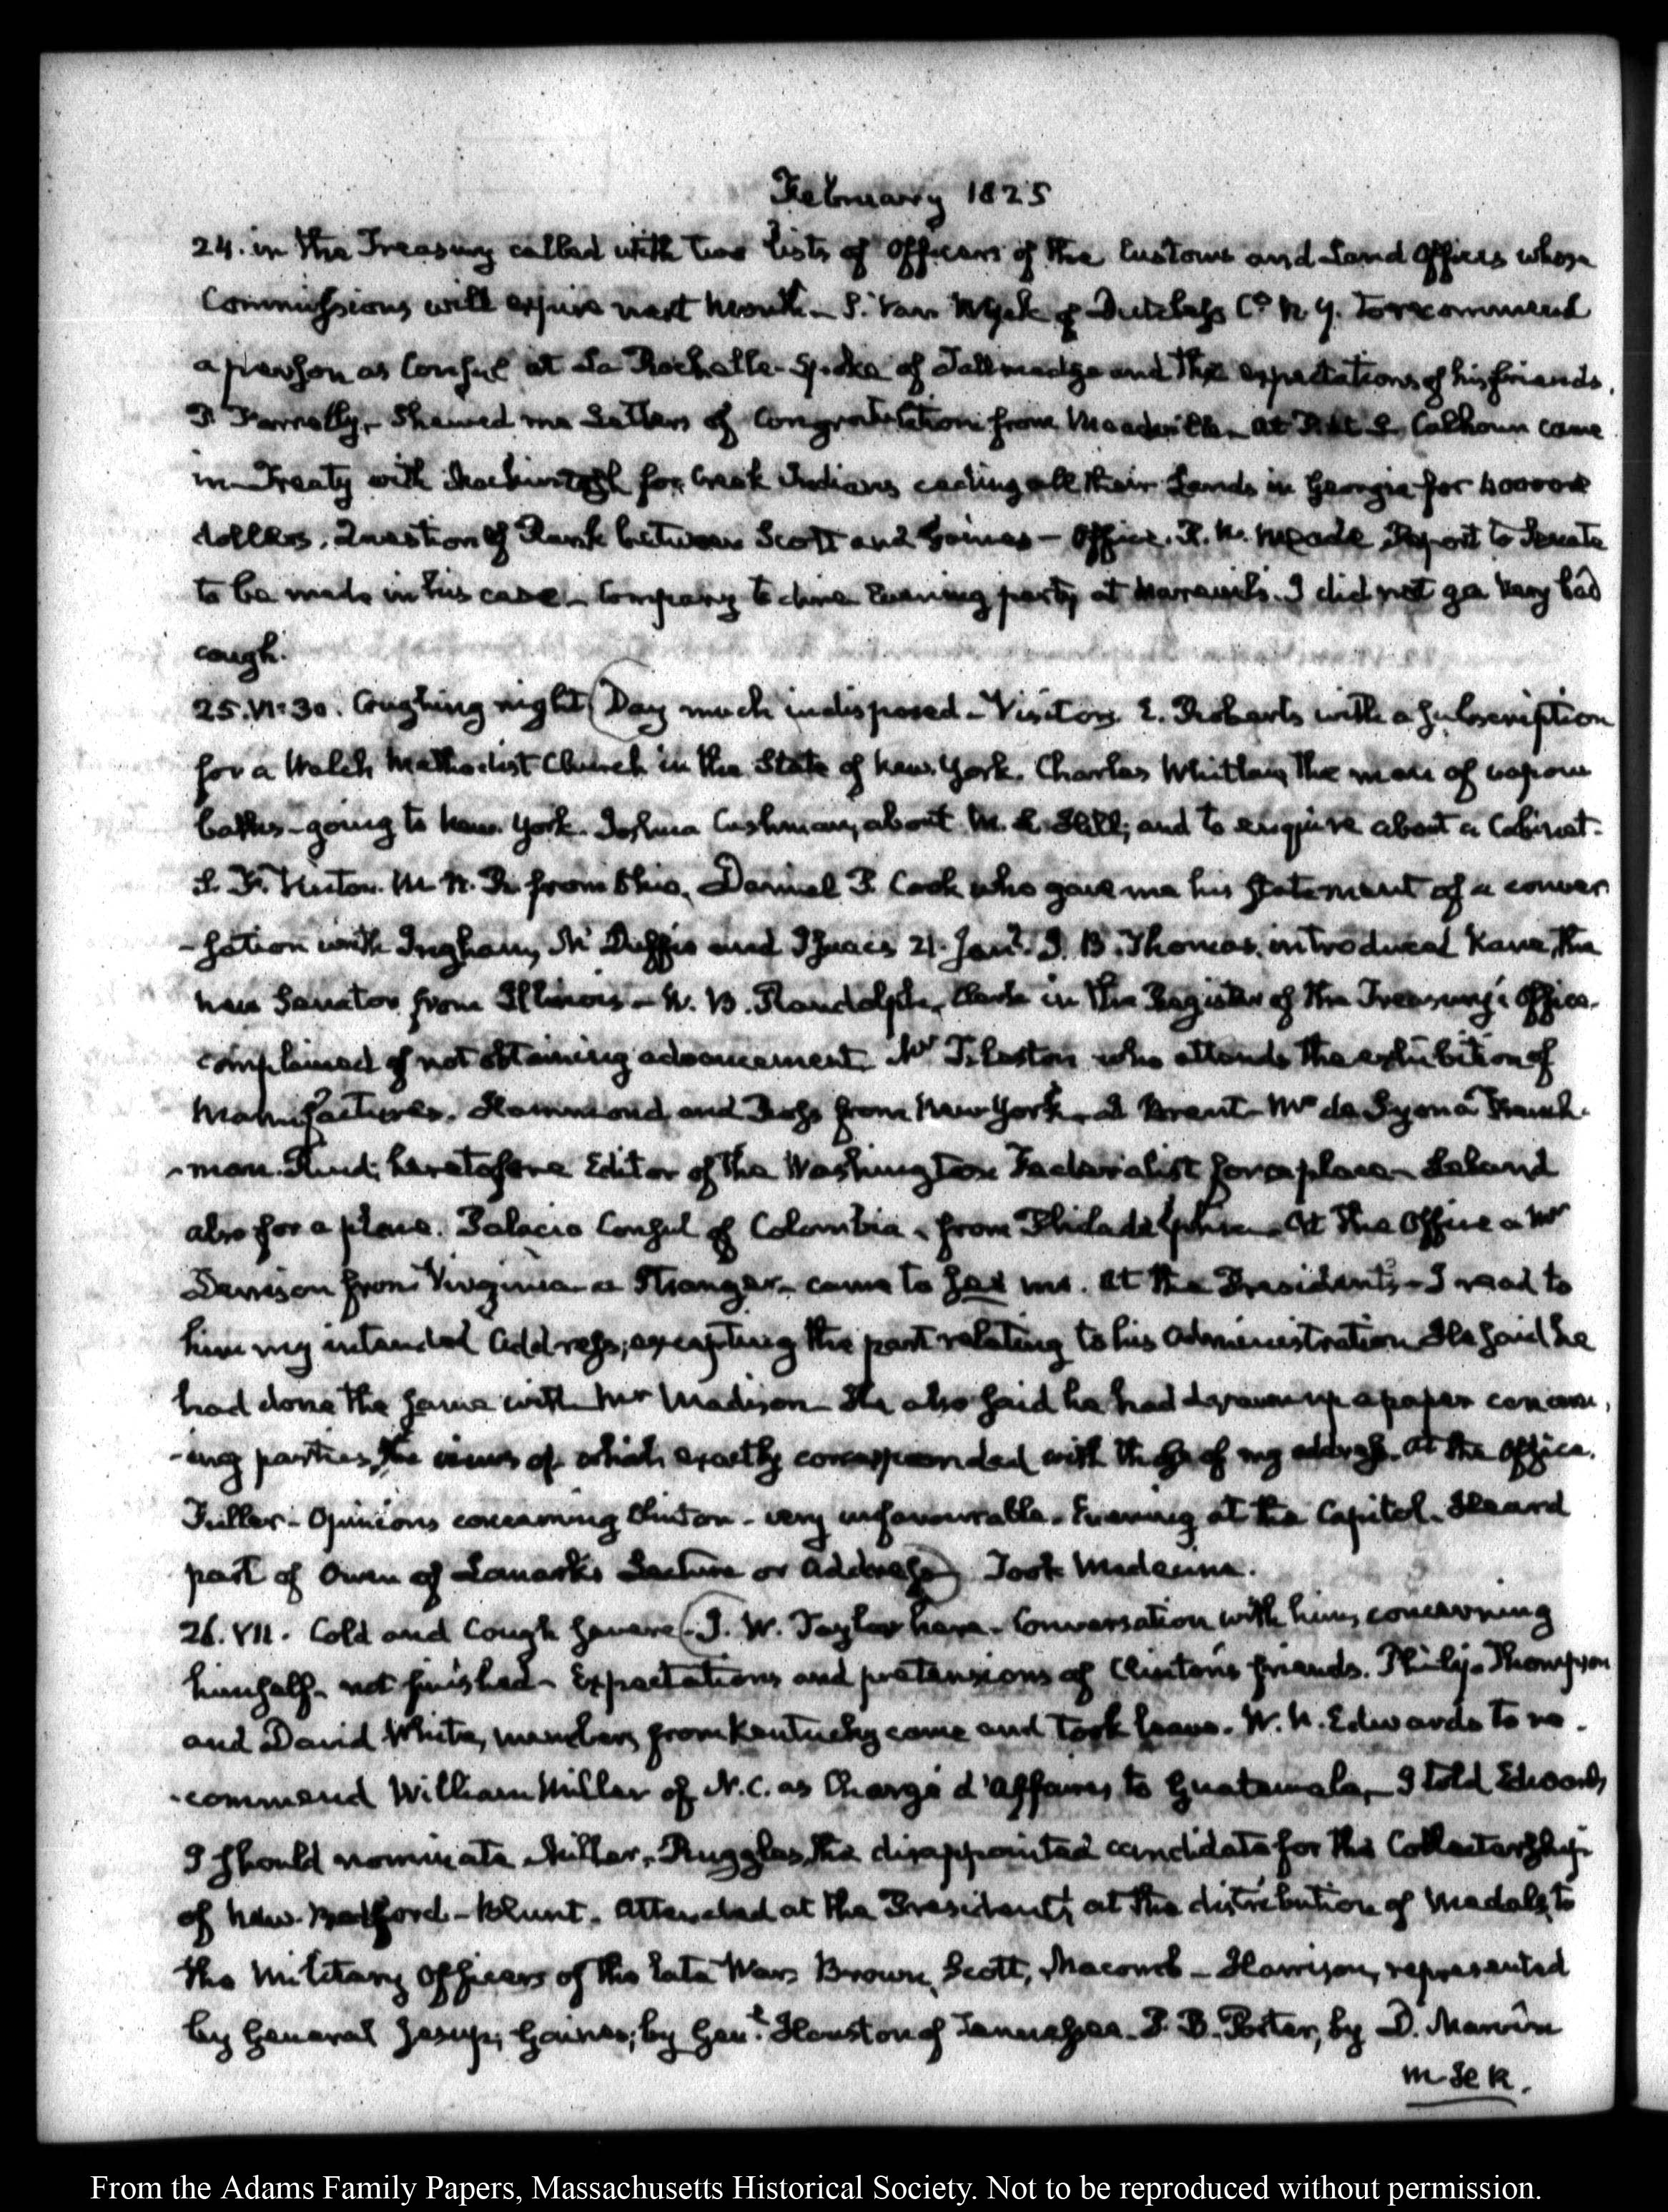 February 1825
24. in the Treasury called with two lists of Officers of the Customs and Land Offices whose
Commissions will expire next Month - S. Van Wyck of Dutchess Co. N.Y. To recommend
a person as Consul at La Rochelle - Spoke of Tallmadge and the expectations of his friends.
P. Farrelly - Shewed me Letters of Congratulation from Meadville - at Calhoun came
in - Treaty with for Creek Indians ceding all their Lands in Georgia for 400000
dollars. Question of Rank between Scott and Gaines - Office. R. W. Meade Report to Senate
to be made in his case - Company to dine Evening party at I did not go Very bad
cough.
25. VI:30. Coughing night (Day much indisposed - Visitors E. Roberts with a subscription
for a Welch Methodist Church in the State of New York. Charles Whitlaw, the man of vapour
baths - going to New York. Joshua Cushman, about M. L. Hill; and to enquire about a Cabinet.
S. F. Vinton M. H. R. from Ohio. Daniel P. Cook who gave me his statement of a conver
-sation with Ingham, Mc Duffie and Isacks 21. Jany. J. B. Thomas. introduced Kane, the
new Senator from Illinois - W. B. Randolph, Clerk in the Register of the Treasury's Office.
complained of not obtaining advancement. Mr Tileston who attends the exhibition of
Manufactures. Hammond and from New York - Brent - Mr de Syon a French-
-man. Rind, heretofore Editor of the Washington Federalist for a place - Leland
also for a place. Palacio Consul of Colombia, from Philadelphia - At the Office a Mr
Denison from Virginia - a Stranger - came to see me. At the President's - I read to
him my intended Address, excepting the part relating to his Administration He said he
had done the same with Mr Madison - He also said he had drawn up a paper concern,
-ing parties, the views of which exactly corresponded with those of my address. At the Office.
Fuller - Opinions concerning Clinton - very unfavourable. Evening at the Capitol. Heard
part of Owen of Lanark's Lecture or Address) Took Medecine.
26. VII. Cold and Cough severe (J. W. Taylor here - Conversation with him, concerning
himself - not finished - Expectations and pretensions of Clinton's friends. Philip Thompson
and David White, members from Kentucky came and took leave. W. N. Edwards to re-
-commend William Miller of N.C. as Chargé d'Affaires to Guatemala - I told Edwards
I should nominate Miller. Ruggles, the disappointed candidate for the Collectorship
of New-Bedford - Blunt. Attended at the President's at the distribution of Medals, to
the Military Officers of the late War. Brown, Scott, Macomb - Harrison, represented
by General Jesup; Gaines; by Genl. Houston of Tennessee. P. B. Porter, by D. Marvin
M H R.
From the Adams Family Papers, Massachusetts Historical Society. Not to be reproduced without permission.